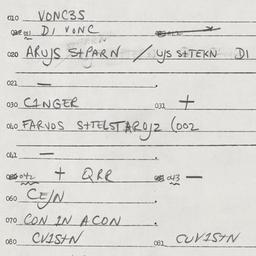 010 VONC3S
DI VONC
020 ARUJS S+PARN / UJS S+TEKN DI
021 —
030 C1NGER 031 +
040 FARVOS S+TELSTAROJZ (002
041 —
042 + QRR 043 —
060 CEJN
070 CON IN ACON
080 CV1S+N 081 CUV1S+N